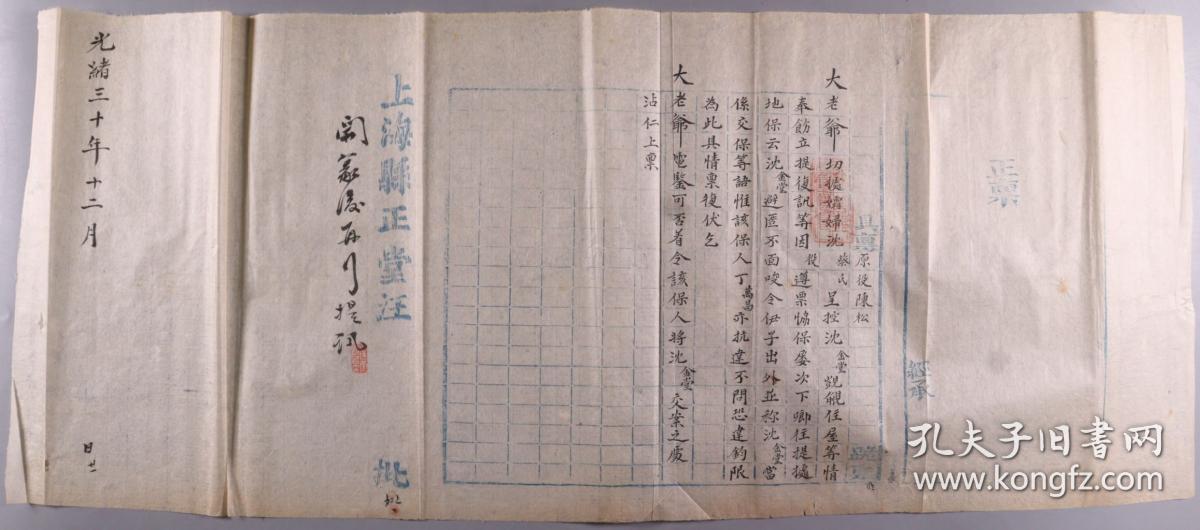 正稟
經承
具稟
原役陳松
大老爺切據孀婦沈蔡氏呈控沈金堂覬覦住屋等情
奉飭立提復訊等因役遵票協保屡次下鄉往提據
地保云沈金堂避匿不面唆令伊子出外並称沈金堂當
係交保等語惟該保人丁萬昌亦抗違不問恐違鈞限
為此具情票復伏乞
大老爺電鑒可否着令該保人将沈金堂交案之處
沾仁上票
上海縣正堂汪
批
開篆後再行提訊
光緒三十年十二月
日廿
孔夫子旧書网
www.kongfz.com